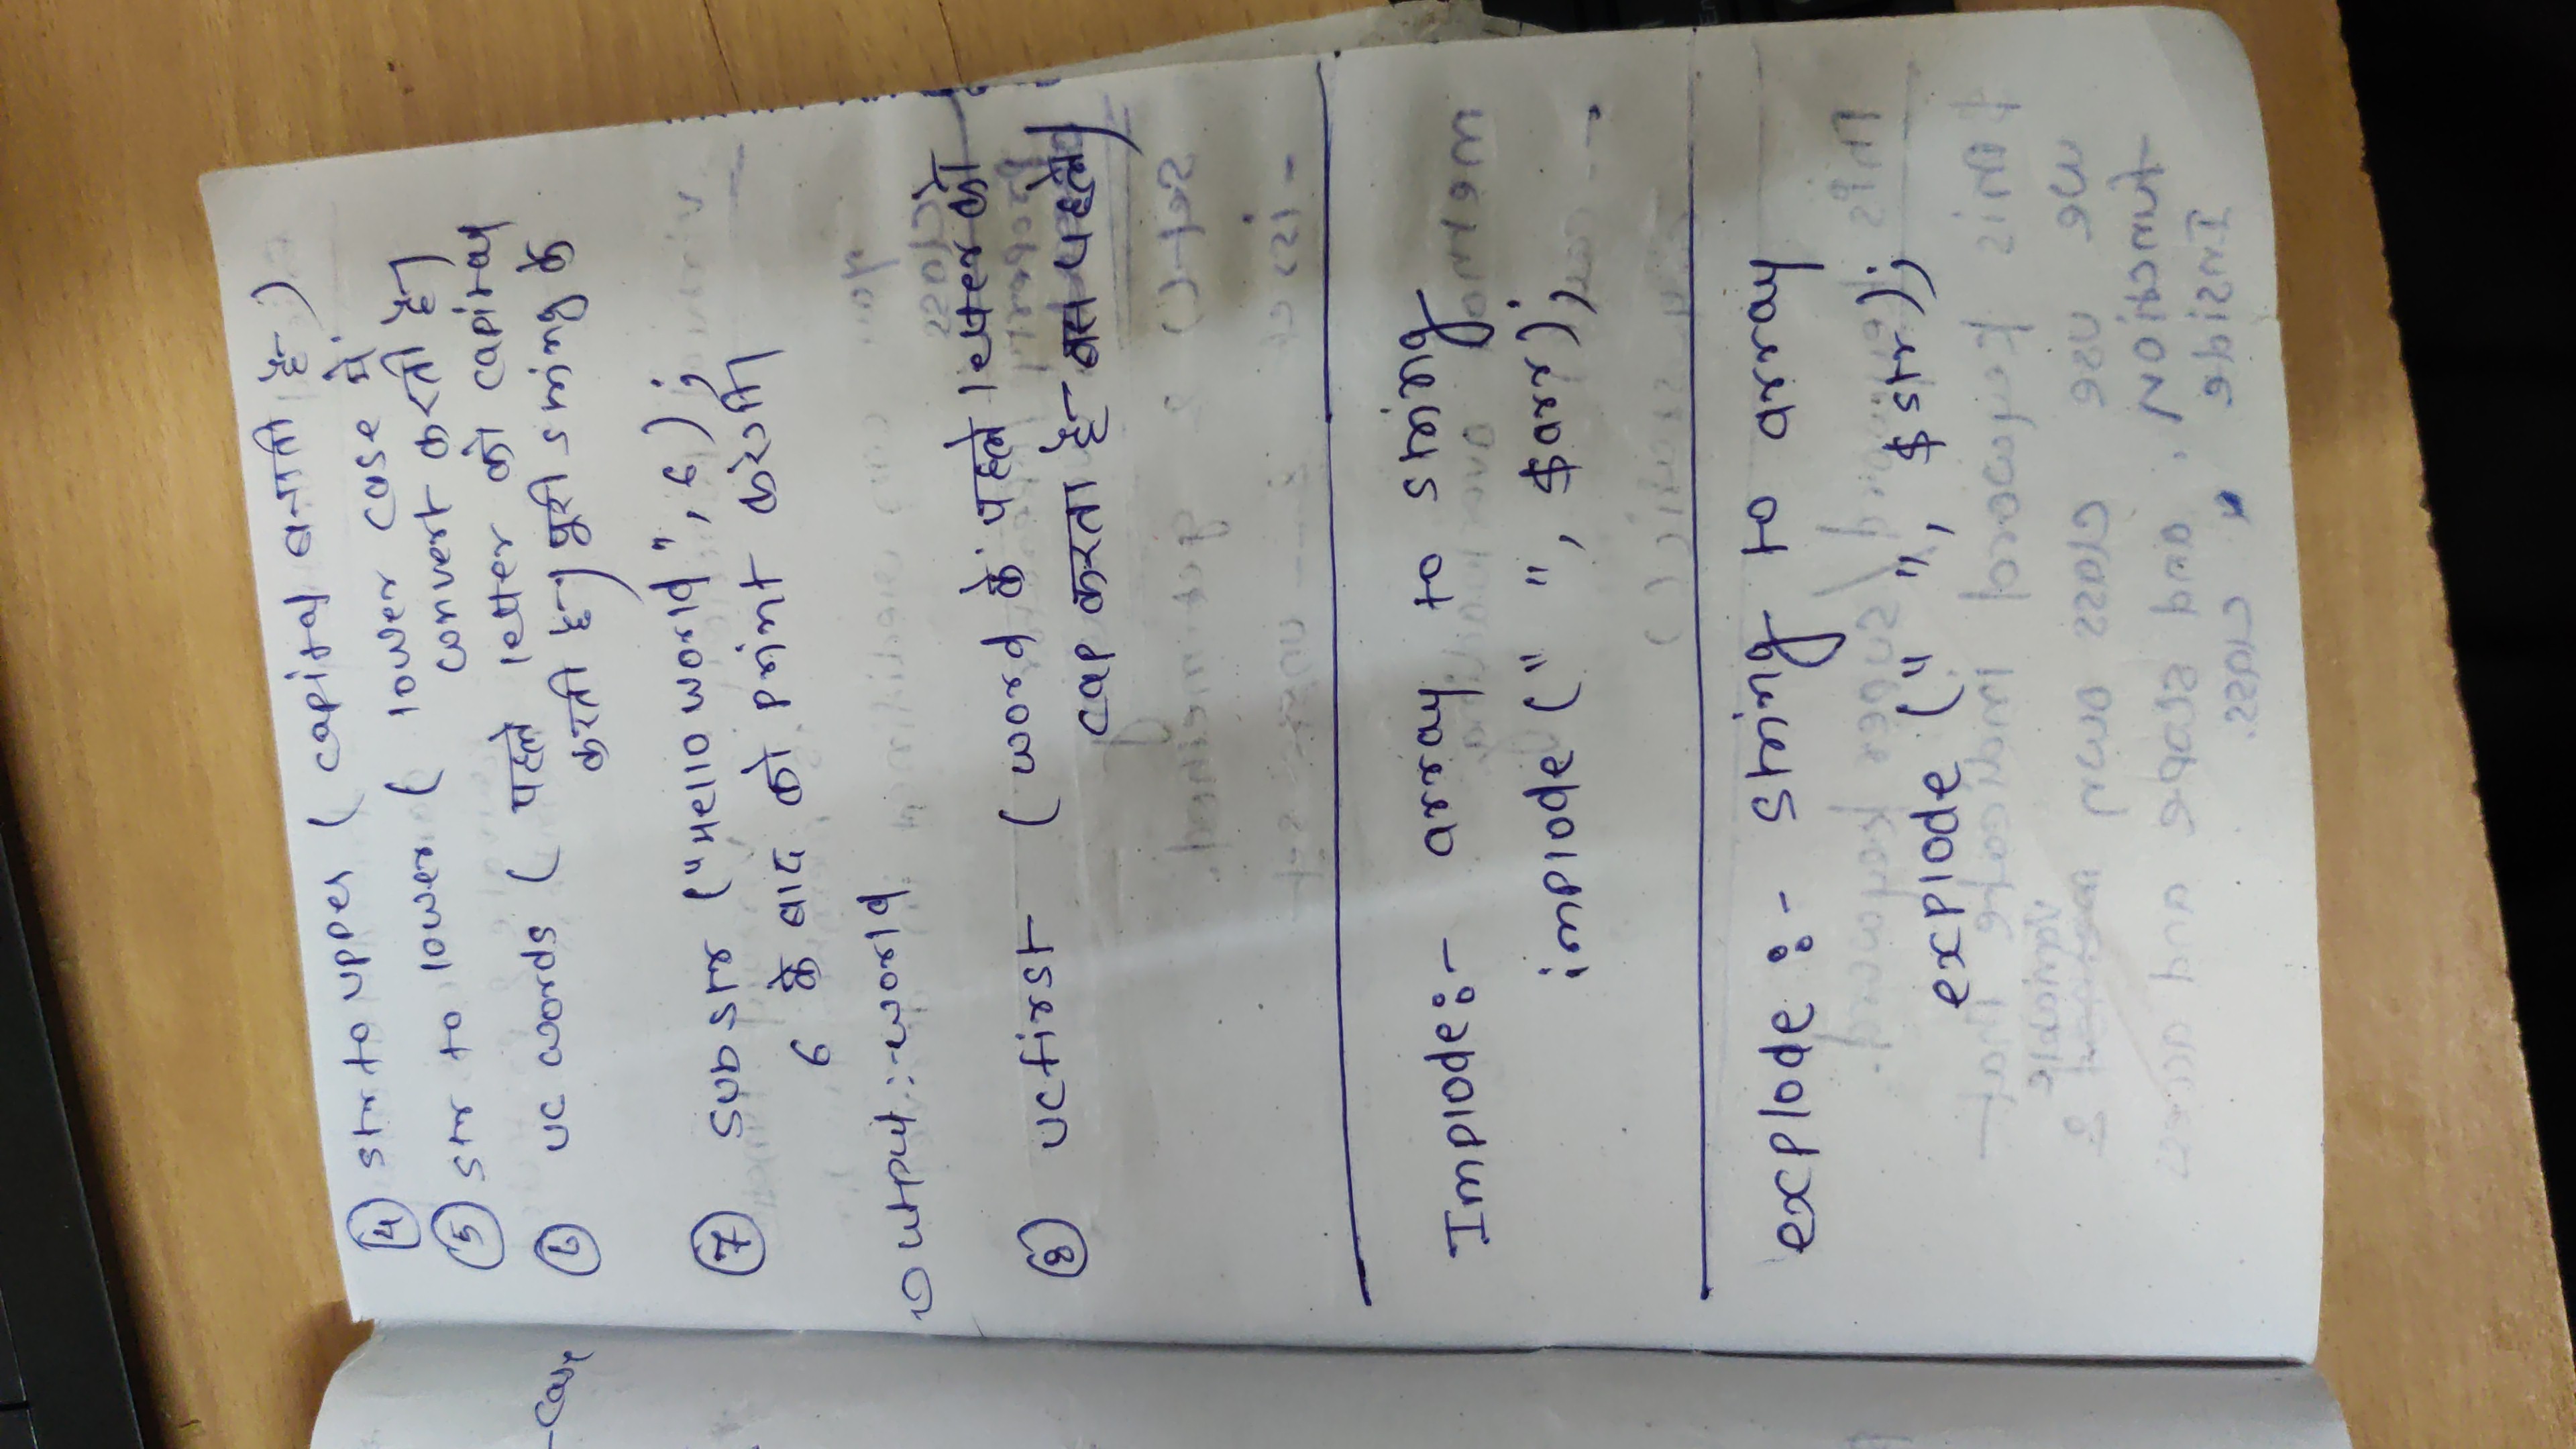 -case
④ strtoupper ( capital बनाती है )
⑤ str to lower ( lower case में
convert करती है)
⑥ uc words ( पहले letter को capital
करती है) पूरी string के
⑦ substr ("Hello world", 6);
6 के बाद को print करेगी
Output:-world
⑧ ucfirst ( word के पहले letter को
cap करता है बस पहले)
Implode:- array to string
implode (" ", $arr);
explode :- string to array
explode (" ", $str);